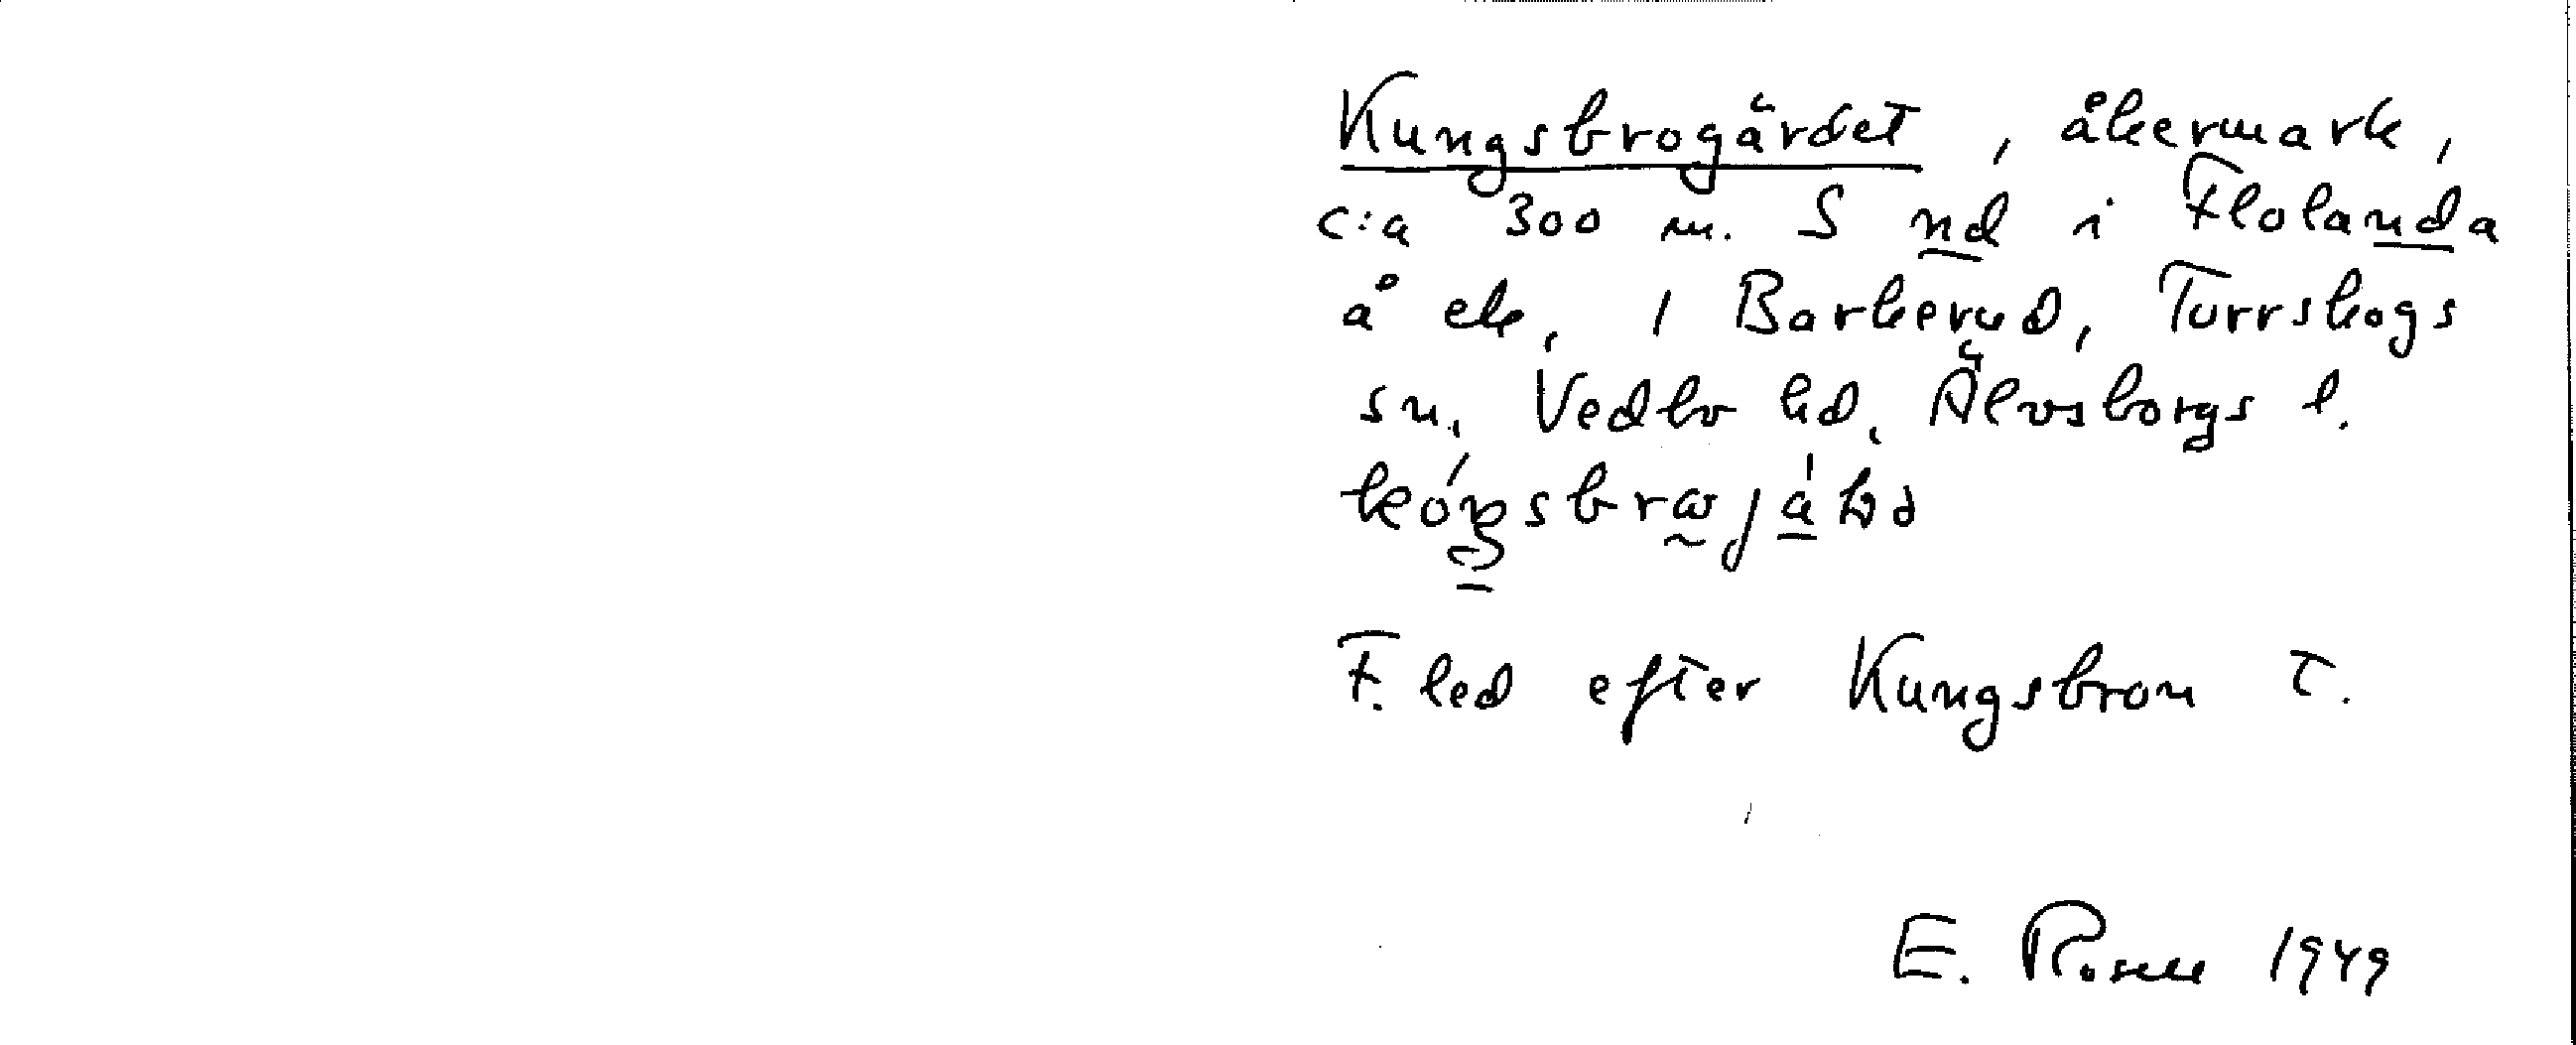 Kungsbrogärdet, åkermark,
c:a 300 m. S nd i Flolanda
å ek. 1 Barkerud, Torrskogs
sn, Vedbo hd, Älvsborgs l.
F. led efter Kungsbron T.
E. Rosell 1949